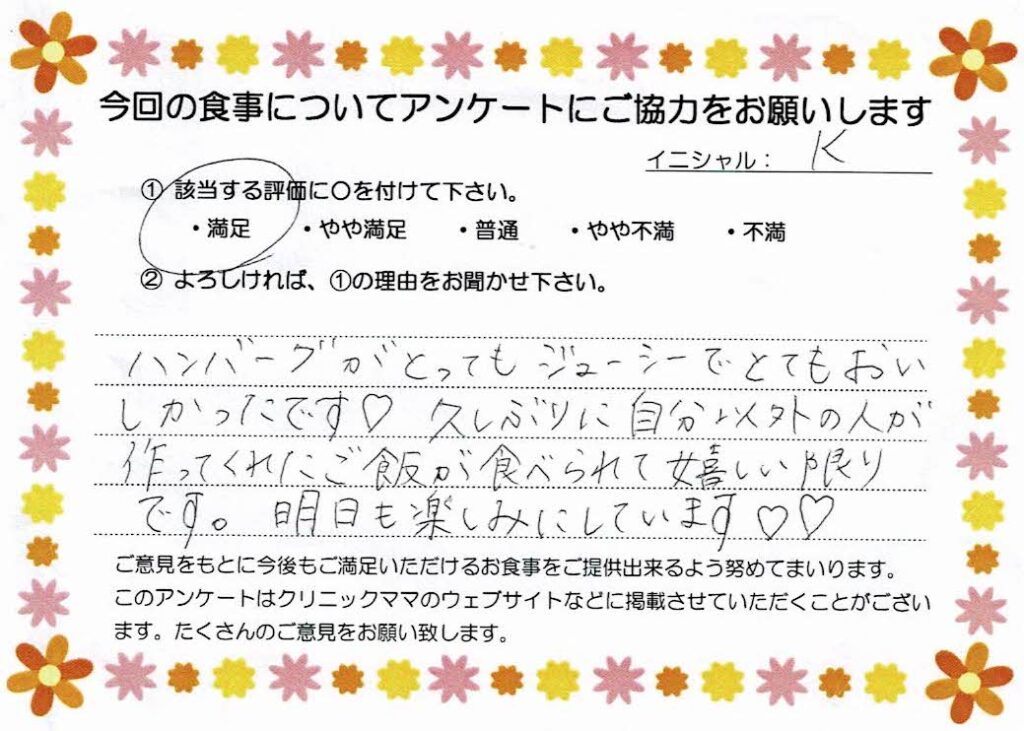 今回の食事についてアンケートにご協力をお願いします
イニシャル： K
① 該当する評価に〇を付けて下さい。
・満足 ・やや満足 ・普通 ・やや不満 ・不満
② よろしければ、①の理由をお聞かせ下さい。
ハンバーグがとってもジューシーでとてもおい
しかったです♡ 久しぶりに自分以外の人が
作ってくれたご飯が食べられて嬉しい限り
です。明日も楽しみにしています♡♡
ご意見をもとに今後もご満足いただけるお食事をご提供出来るよう努めてまいります。
このアンケートはクリニックママのウェブサイトなどに掲載させていただくことがござい
ます。たくさんのご意見をお願い致します。